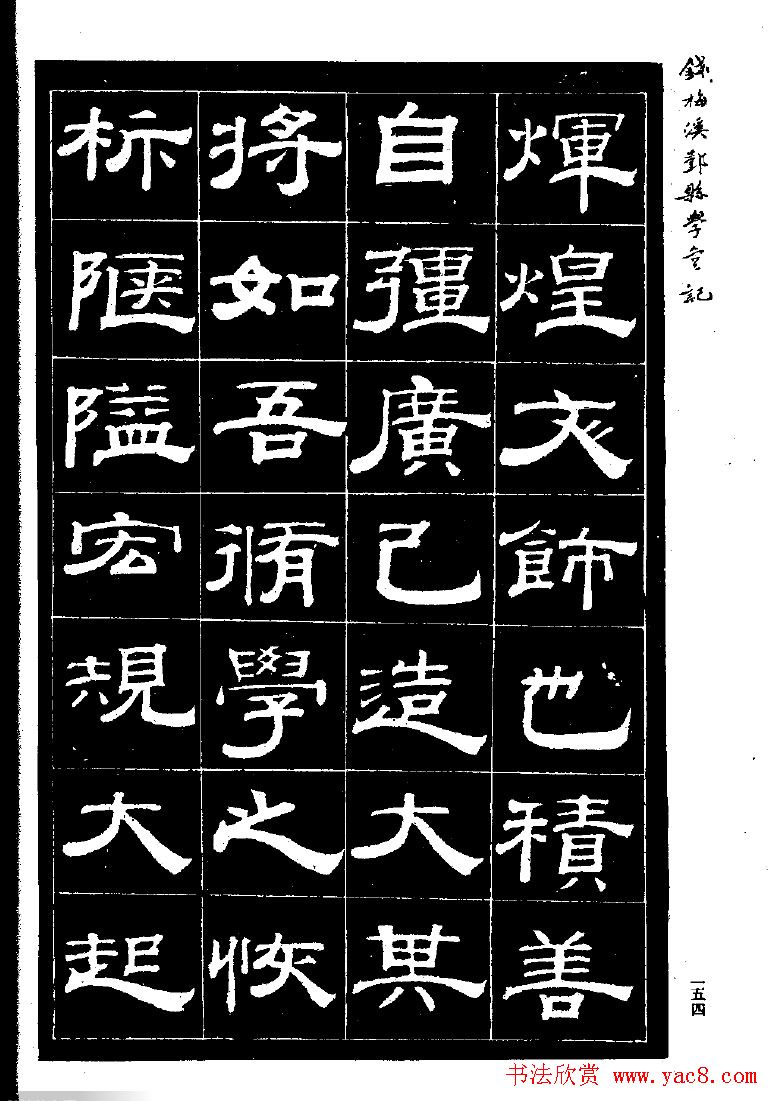 錢梅溪鄞縣學宮記
煇煌彣飾也積善
自彊廣己造大其
將如吾脩學之恢
柝陿隘宏規大起
一五四
书法欣赏 www.yac8.com